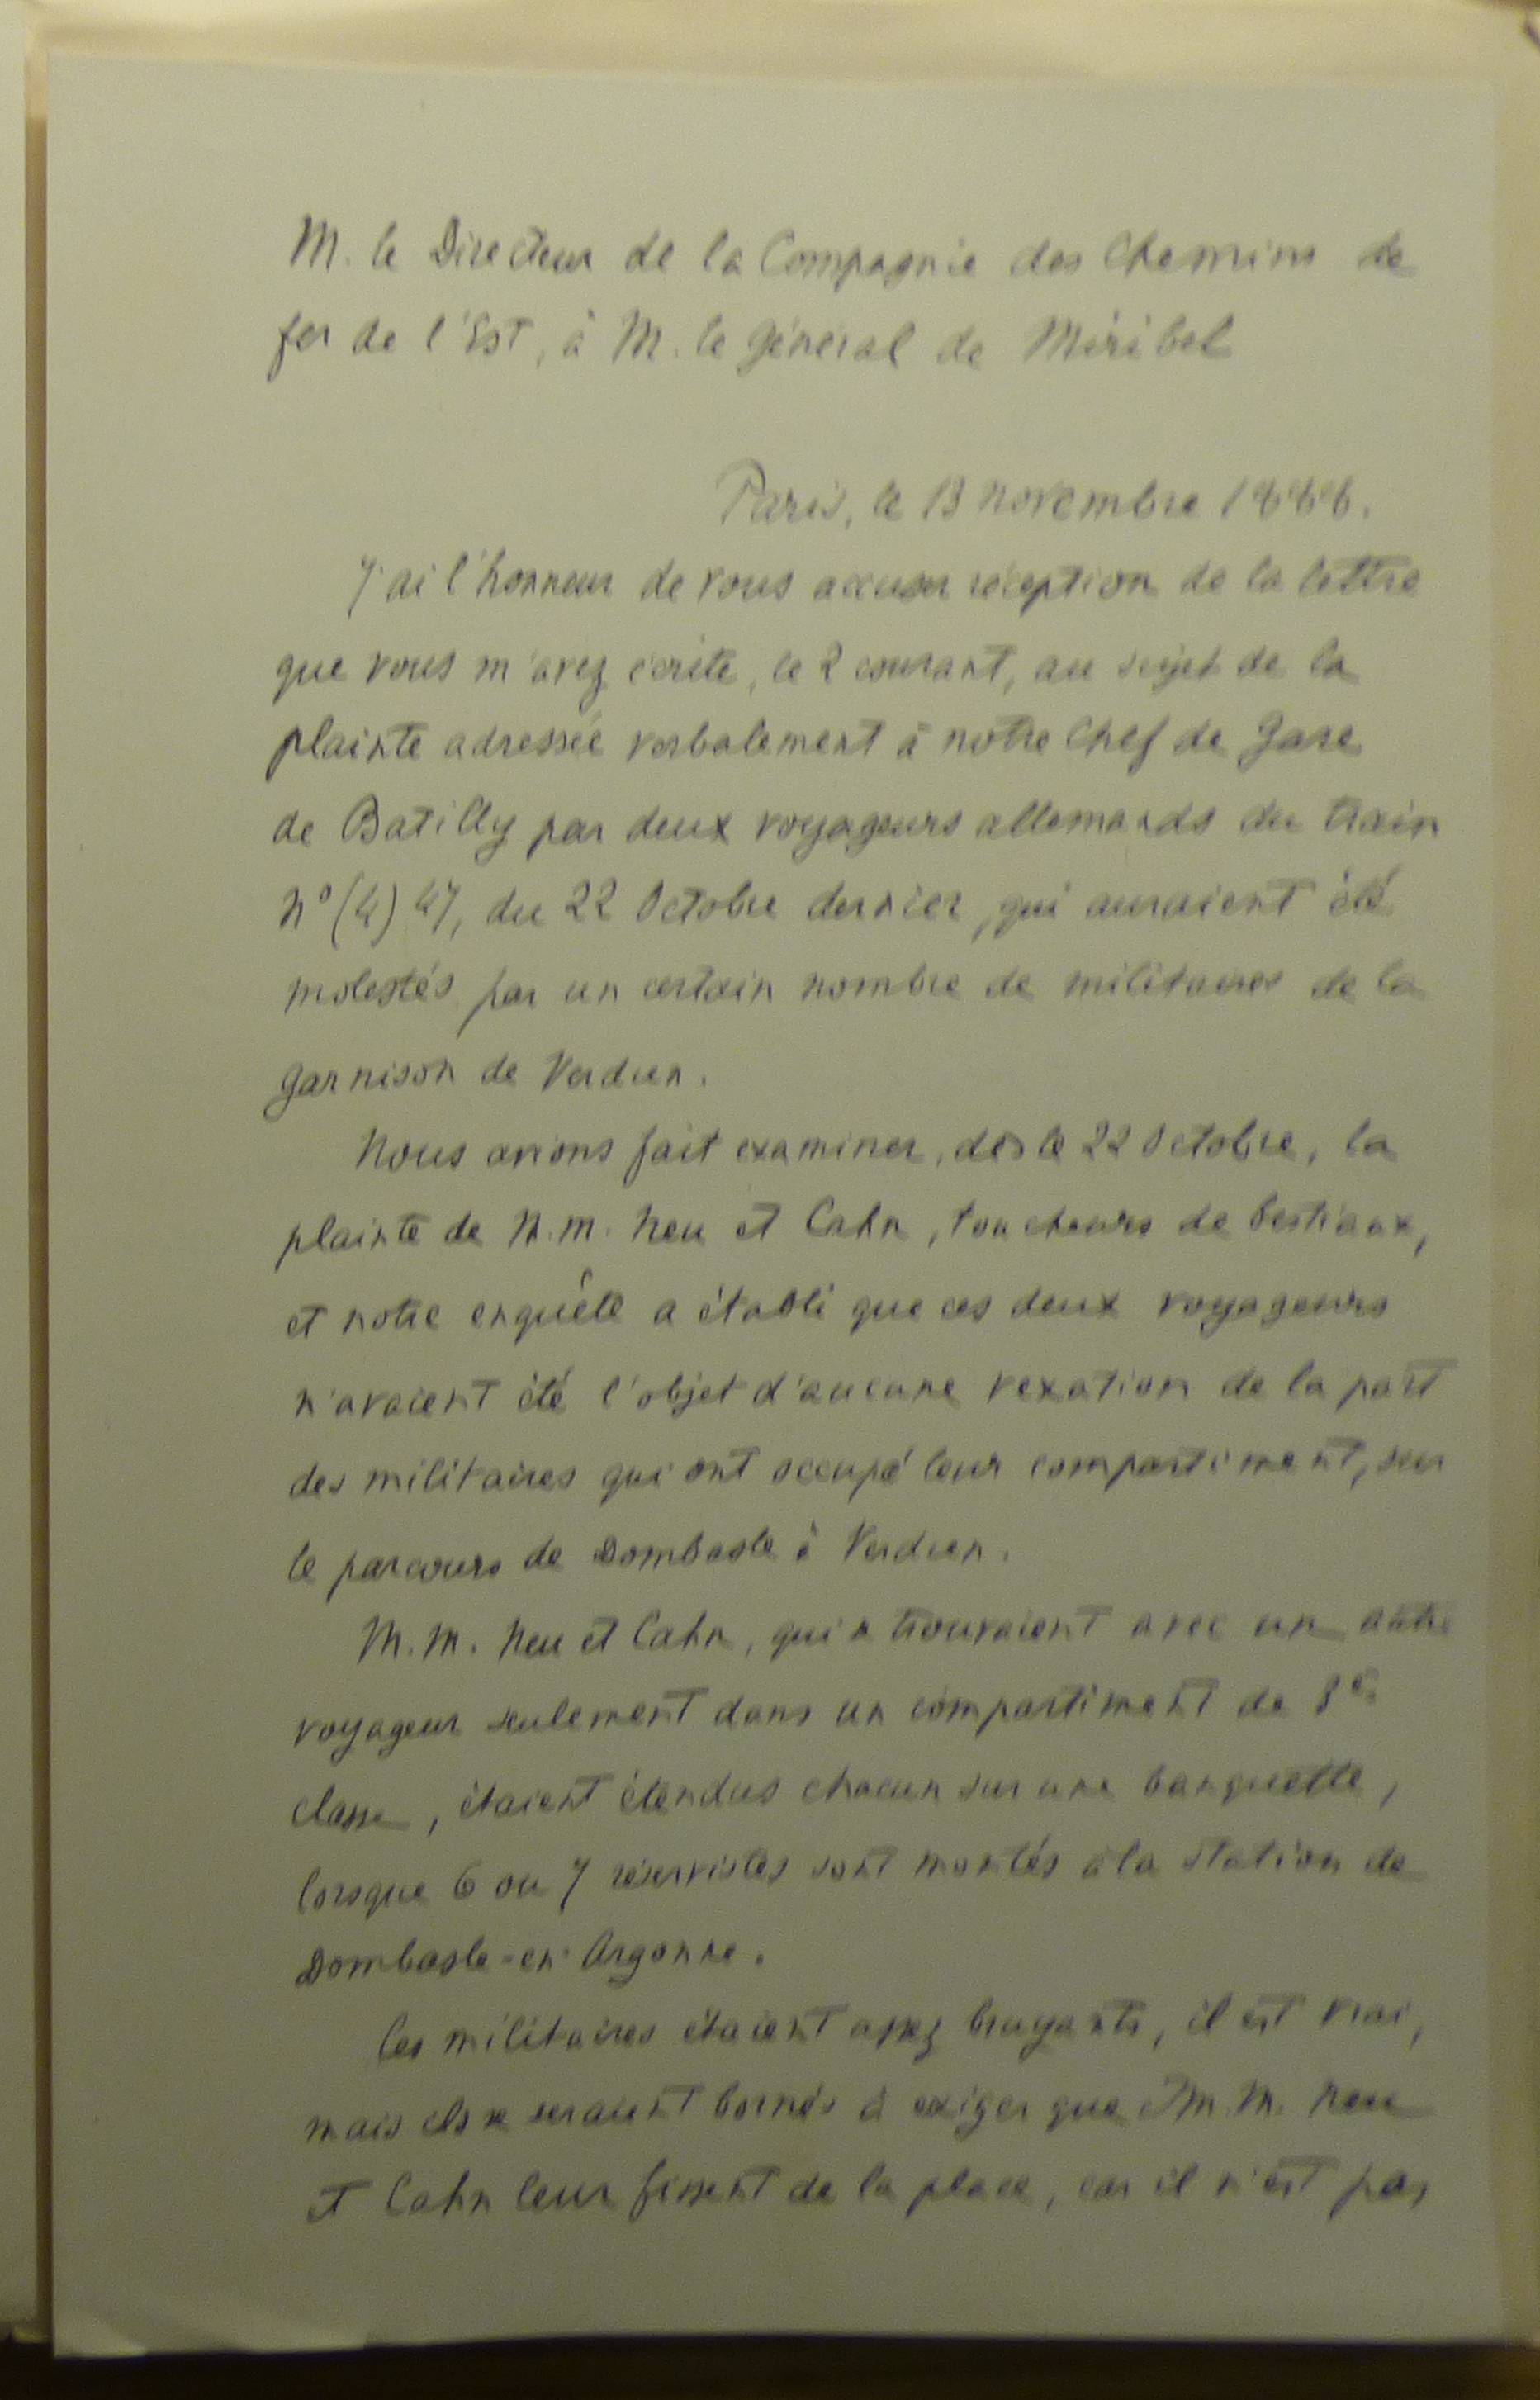 M. le Directeur de la Compagnie des Chemins de
fer de l'Est, à M. le Général de Miribel
Paris, le 13 novembre 1888.
J'ai l'honneur de vous accuser réception de la lettre
que vous m'avez écrite, le 2 courant, au sujet de la
plainte adressée verbalement à notre Chef de Gare
de Batilly par deux voyageurs allemands du train
n° (4) 47, du 22 Octobre dernier, qui auraient été
molestés par un certain nombre de militaires de la
garnison de Verdun.
Nous avions fait examiner, dès le 22 Octobre, la
plainte de M.M. Neu et Cahn, toucheurs de bestiaux,
et notre enquête a établi que ces deux voyageurs
n'avaient été l'objet d'aucune vexation de la part
des militaires qui ont occupé leur compartiment, sur
le parcours de Dombasle à Verdun.
M.M. Neu et Cahn, qui se trouvaient avec un autre
voyageur seulement dans un compartiment de 3e
classe, étaient étendus chacun sur une banquette,
lorsque 6 ou 7 réservistes sont montés à la station de
Dombasle-en-Argonne.
Ces militaires étaient assez bruyants, il est vrai,
mais ils se seraient bornés à exiger que M.M. Neu
et Cahn leur fissent de la place, car il n'est pas